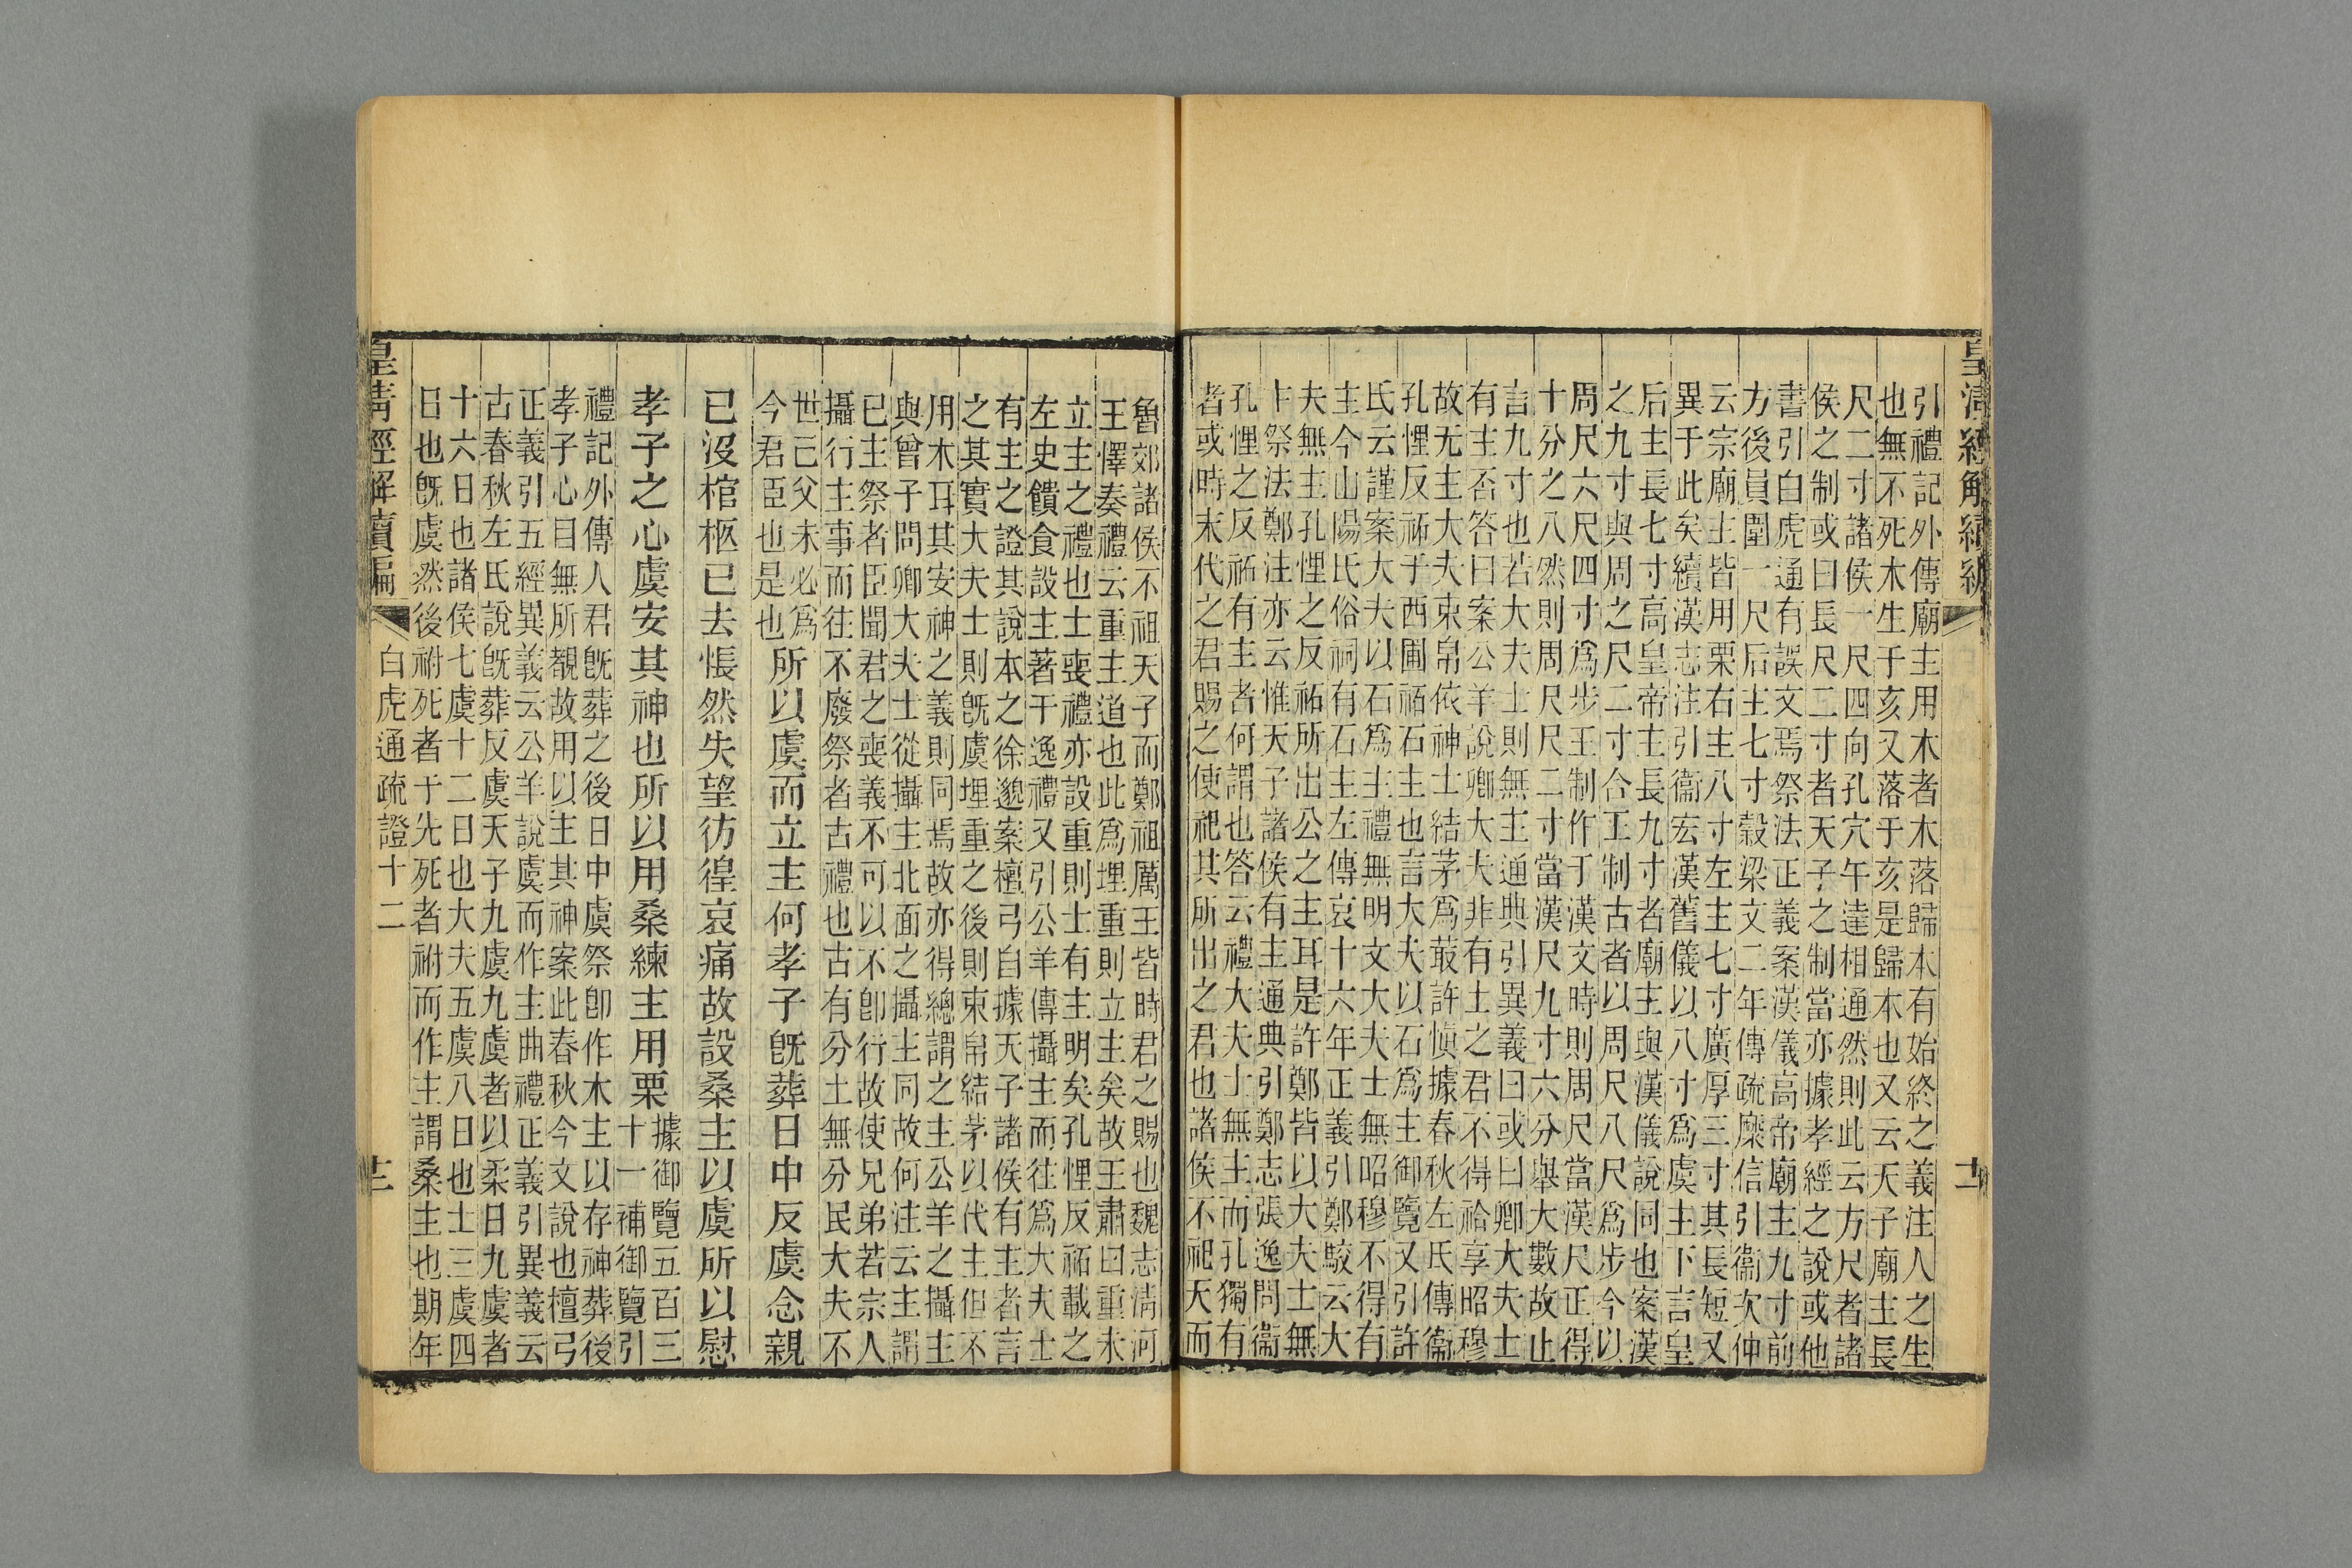 皇清經解續編
十二
引禮記外傳廟主用木者木落歸本有始終之義注人之生
也無不死木生于亥又落于亥是歸本也又云天子廟主長
尺二寸諸侯一尺四向孔穴午達相通然則此云方尺者諸
侯之制或曰長尺二寸者天子之制當亦據孝經之說或他
書引白虎通有誤文焉祭法正義案漢儀高帝廟主九寸前
方後員圍一尺后主七寸穀梁文二年傳疏糜信引衞次仲
云宗廟主皆用栗右主八寸左主七寸廣厚三寸其長短又
異于此矣續漢志注引衞宏漢舊儀以八寸爲虞主下言皇
后主長七寸高皇帝主長九寸者廟主與漢儀說同也案漢
之九寸與周之尺二寸合王制古者以周尺八尺爲步今以
周尺六尺四寸爲步王制作于漢文時則周尺當漢尺正得
十分之八然則周尺尺二寸當漢尺九寸六分舉大數故止
言九寸也若大夫士則無主通典引異義曰或曰卿大夫士
有主否答曰案公羊說卿大夫非有土之君不得祫享昭穆
故无主大夫束帛依神士結茅爲菆許愼據春秋左氏傳衞
孔悝反祏于西圃祏石主也言大夫以石爲主御覽又引許
氏云謹案大夫以石爲主禮無明文大夫士無昭穆不得有
主今山陽氏俗祠有石主左傳哀十六年正義引鄭駁云大
夫無主孔悝之反祏所出公之主耳是許鄭皆以大夫士無
主祭法鄭注亦云惟天子諸侯有主通典引鄭志張逸問衞
孔悝之反祏有主者何謂也答云禮大夫士無主而孔獨有
者或時末代之君賜之使祀其所出之君也諸侯不祀天而
魯郊諸侯不祖天子而鄭祖厲王皆時君之賜也魏志淸河
王懌奏禮云重主道也此爲埋重則立主矣故王肅曰重未
立主之禮也士喪禮亦設重則士有主明矣孔悝反祏載之
左史饋食設主著于逸禮又引公羊傳攝主而往爲大夫士
有主之證其說本之徐邈案檀弓自據天子諸侯有主者言
之其實大夫士則旣虞埋重之後則束帛結茅以代主但不
用木耳其安神之義則同焉故亦得總謂之主公羊之攝主
與曾子問卿大夫士從攝主北面之攝主同故何注云主謂
已主祭者臣聞君之喪義不可以不卽行故使兄弟若宗人
攝行主事而往不廢祭者古禮也古有分土無分民大夫不
世己父未必爲
今君臣也是也
所以虞而立主何孝子旣葬日中反虞念親
已沒棺柩已去悵然失望彷徨哀痛故設桑主以虞所以慰
孝子之心虞安其神也所以用桑練主用栗
據御覽五百三
十一補御覽引
禮記外傳人君旣葬之後日中虞祭卽作木主以存神葬後
孝子心目無所覩故用以主其神案此春秋今文說也檀弓
正義引五經異義云公羊說虞而作主曲禮正義引異義云
古春秋左氏說旣葬反虞天子九虞九虞者以柔日九虞者
十六日也諸侯七虞十二日也大夫五虞八日也士三虞四
日也旣虞然後祔死者于先死者祔而作主謂桑主也期年
皇清經解續編
白虎通疏證十二
十三